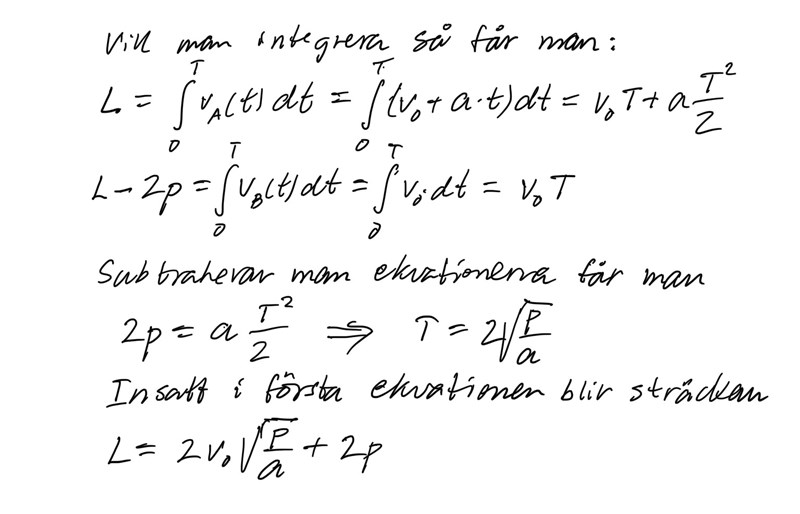 Vill man integrera så får man:
L = ∫₀ᵀ v_A(t) dt = ∫₀ᵀ (v₀ + a·t) dt = v₀T + a T²/2
L − 2p = ∫₀ᵀ v_B(t) dt = ∫₀ᵀ v₀·dt = v₀T
Subtraherar man ekvationerna får man
2p = a T²/2 ⇒ T = 2√(p/a)
Insatt i första ekvationen blir sträckan
L = 2v₀√(p/a) + 2p